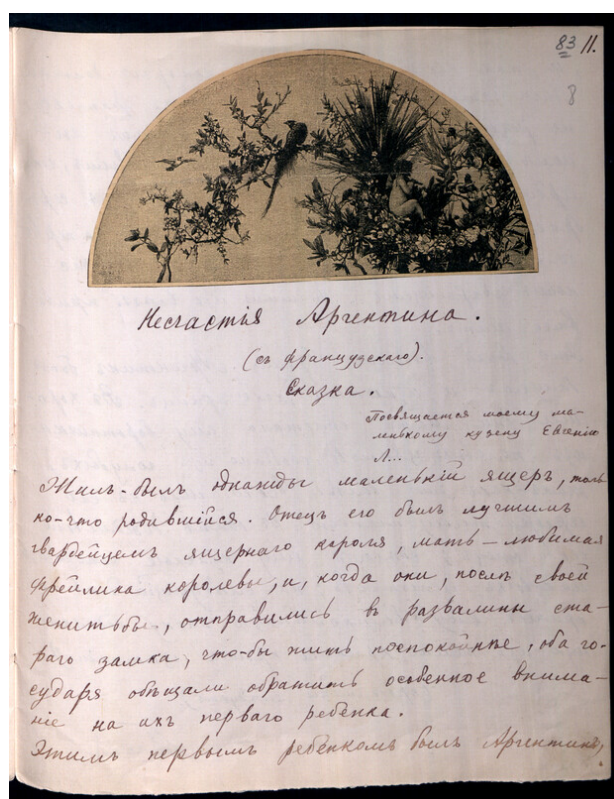 83 11.
8
Несчастія Аргентина.
(съ французскаго).
Сказка.
Посвящается моему ма-
ленькому кузену Евгенію
Л...
Жилъ-былъ однажды маленькій ящеръ, толь
ко-что родившійся. Отецъ его былъ лучшимъ
гвардейцемъ ящернаго короля, мать – любимая
фрейлина королевы, и, когда они, послѣ своей
женитьбы, отправились въ развалины ста-
раго замка, что-бы жить поспокойнѣе, оба го-
сударя обѣщали обратить особенное внима-
ніе на ихъ перваго ребенка.
Этимъ первымъ ребенкомъ былъ Аргентинъ,